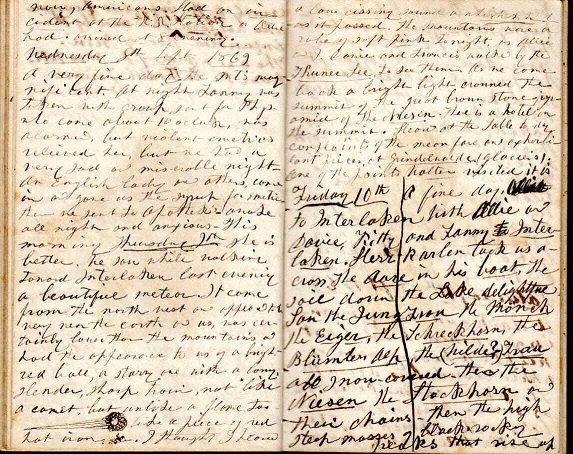 many Americans. Had an in
cident at the
had arrived at evening.
Wednesday 8th Sept 1869
A very fine day the mts mag
nificent. At night Fanny was
taken with croup sent for Dr
who came about 10 o'clock, was
alarmed, but violent emetics
relieved her, but we had a
very sad or miserable night
An English lady or others, came
in or gave us the syrup for
the we sent to Apothek awake
all night and anxious. This
morning Thursday 9th she is
better. We saw while walking
toward Interlaken last evening
a beautiful meteor. It came
from the north west or appeared
very near the earth or us, was cer
tainly lower than the mountains or
had the appearance to us of a bright
red ball, a starry one with a long
slender, sharp train, not like
a comet but unlike a flame too
like a piece of red
hot iron. I thought I heard
a low hissing sound
as it passed. The mountains were a
soft pink tonight, or Allie
or I, Davie and walked by the
Thuner See, to see them. As we came
back a bright light crowned the
summit of the great brown stone pyr
amid of the Niesen. There is a hotel on
the summit. at the table to day
complaints of the moon fare or exhorbi
tant prices, at Grindelwald (glaciers);
one of the points Walter visited it is
Friday 10th A fine day.
to Interlaken with Allie or
Davie, Kitty and Fanny to Inter
laken. Herr Karlen took us a-
cross the Aare in his boat, the
sail down the Lake delightful
Saw the Jungfrau the Mönch
the Eiger, the Schreckhorn, the
Blümlis Alp the (Wilde) Frau
all snow-covered the the
Niesen the Stockhorn or
their chains then the high
steep masses black rocky
peaks that rise up